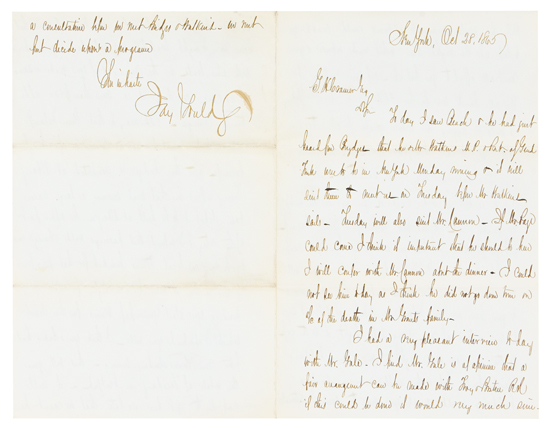 a consultation before we meet Bridges & Watkin - we must
but decide upon a programe
In haste
Jay Gould
New York, Oct 28. 1865
G H Cramer Esq
To day I saw Birch & he had just
heard from Brydges that he & Mr Watkin M.P. & Pat. of Grand
Trunk were to be in New York Monday evening & it will
suit them to meet us on Tuesday before Mr Watkins
sails - Tuesday will also suit Mr Cannon - If Mr Page
could come I think it important that he should be here
I will confer with Mr Cannon about the dinner - I could
not see him to day as I think he did not go down town on
of the death in Mr family -
I had a very pleasant interview to day
with Mr Gale - I find Mr Gale is of opinion that a
fair arrangement can be made with Troy & Boston RR
if this could be done it would very much sim-